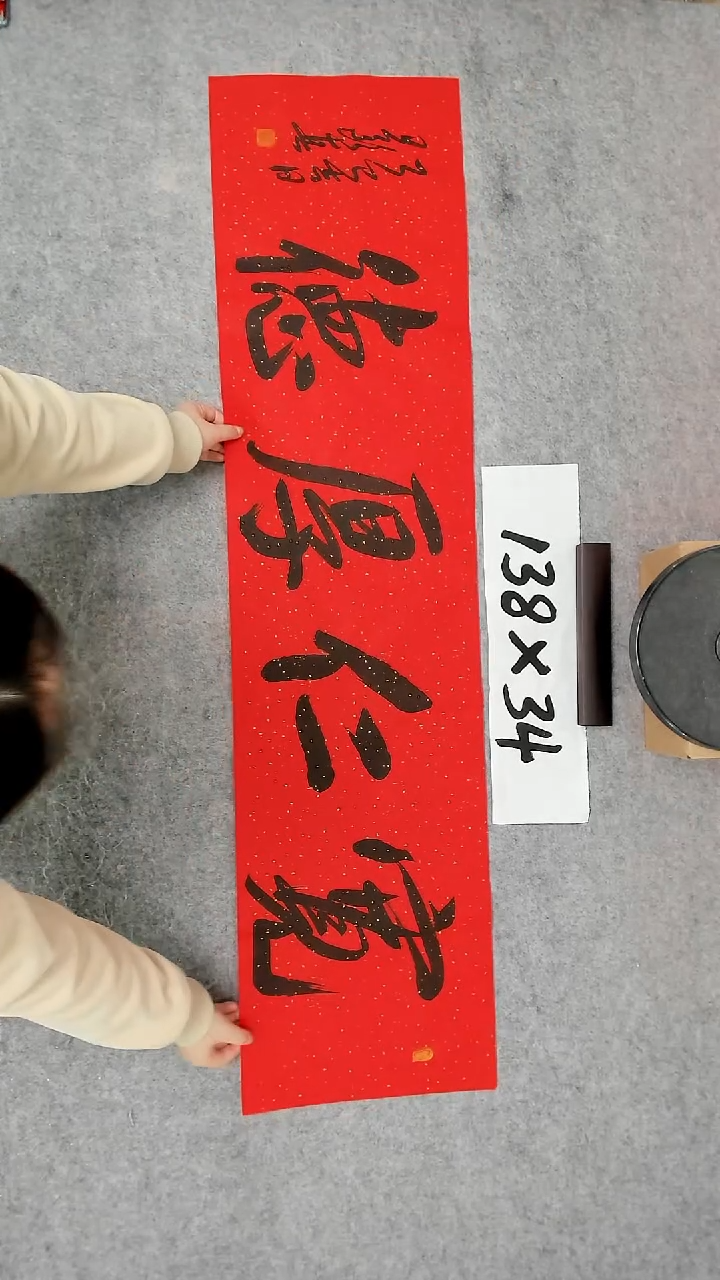 寬仁厚德
138×34